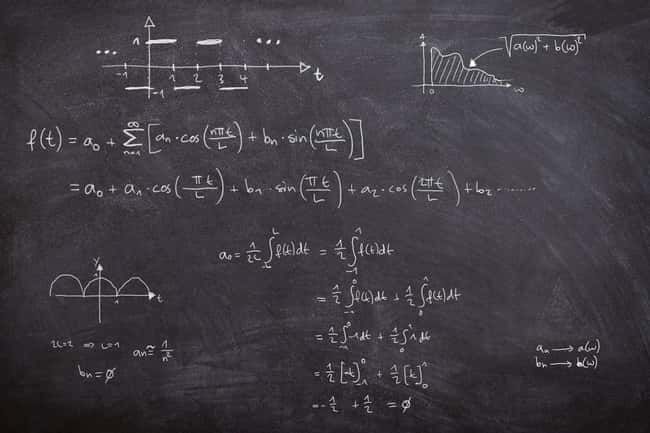 1
...
...
-1
1
2
3
4
t
-1
√(a(ω)² + b(ω)²)
0
ω
f(t) = a₀ + ∑ₙ₌₁^∞ [aₙ·cos(nπt/L) + bₙ·sin(nπt/L)]
= a₀ + a₁·cos(πt/L) + b₁·sin(πt/L) + a₂·cos(2πt/L) + b₂ ........
a₀ = 1/2L ∫₋L^L f(t)dt = 1/2 ∫₋₁^1 f(t)dt
= 1/2 ∫₋₁^0 f(t)dt + 1/2 ∫₀^1 f(t)dt
y
1
t
2L=2 ⇒ L=1
aₙ ≈ 1/n²
bₙ = ∅
= 1/2 [-t]₋₁^0 + 1/2 [t]₀^1
= -1/2 + 1/2 = ∅
aₙ → a(ω)
bₙ → b(ω)